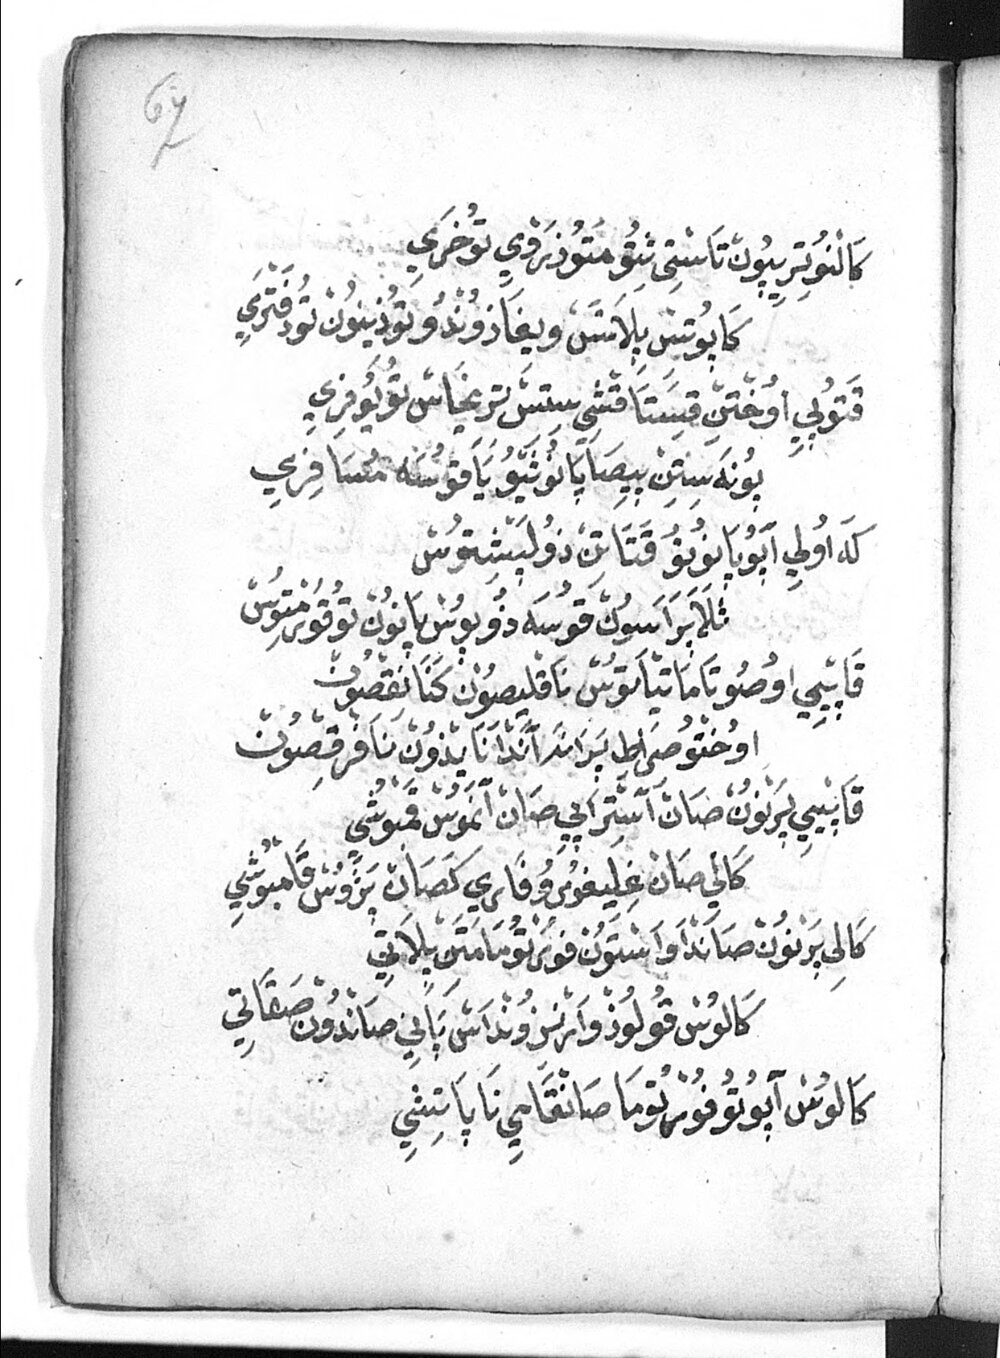 67
كَالْنُوتِرِيپُونْ تَاسْتِي ثِتُو مَتُوذْ نَرْوِي تُوخَرَيِ
كَاپُوتِسْ پِلَاتَسْ وِيغَازُونْدُو تُوذِينُونْ تُودَفْتَرَيِ
قَتُوپِي اُوخْتِنْ قِسَتَا قَشِي سِتِسْ تَرِيخَاسْ تُو يُوفِرِي
پُونَه سِتِنْ پِيصَا پَانُوثِيُو يَاقُوسَه مُسَافِرِي
كَلَه اُولِي آپُوپَانُونُو قَتَاتِنْ ذُولِپَشِتُوسْ
ثَلَاپَرَاسُونْ قُوسَه ذُو پُوسْ پَانُونْ تُو قُورْمِتُوسْ
قَاپِيِي اُوصُوتَامَاتْيَاتُوسْ نَاقْلِيصُونْ كَنَانِقْصُونْ
اُوخْتُو صِرَاطْ پَرَاندَ آنْدَانَا يِذُونْ نَنَافَرِقِصُونْ
قَاپِيِي پَرْنُونْ صَانْ آسْتَرَاپِي صَانْ آنَمُوسْ قَمُوشِي
كَالِي صَانْ غِلِيغُورُو فَارِي كَصَانْ پَزُوسْ قَامْبُوشِي
كَالِي پَرْنُونْ صَانْدَا وَاسْتُونْ فُورْتُومَامَتَنْ پِلَاتِي
كَالُوسْ قُولُوذْ وَارْنِزُونْدَاسْ پَانِي صَانْدُونْ صَقَاتِي
كَالُوسْ آپُوتُو فُورْتُومَا صَانْقَامِي نَا پَاتِشِي